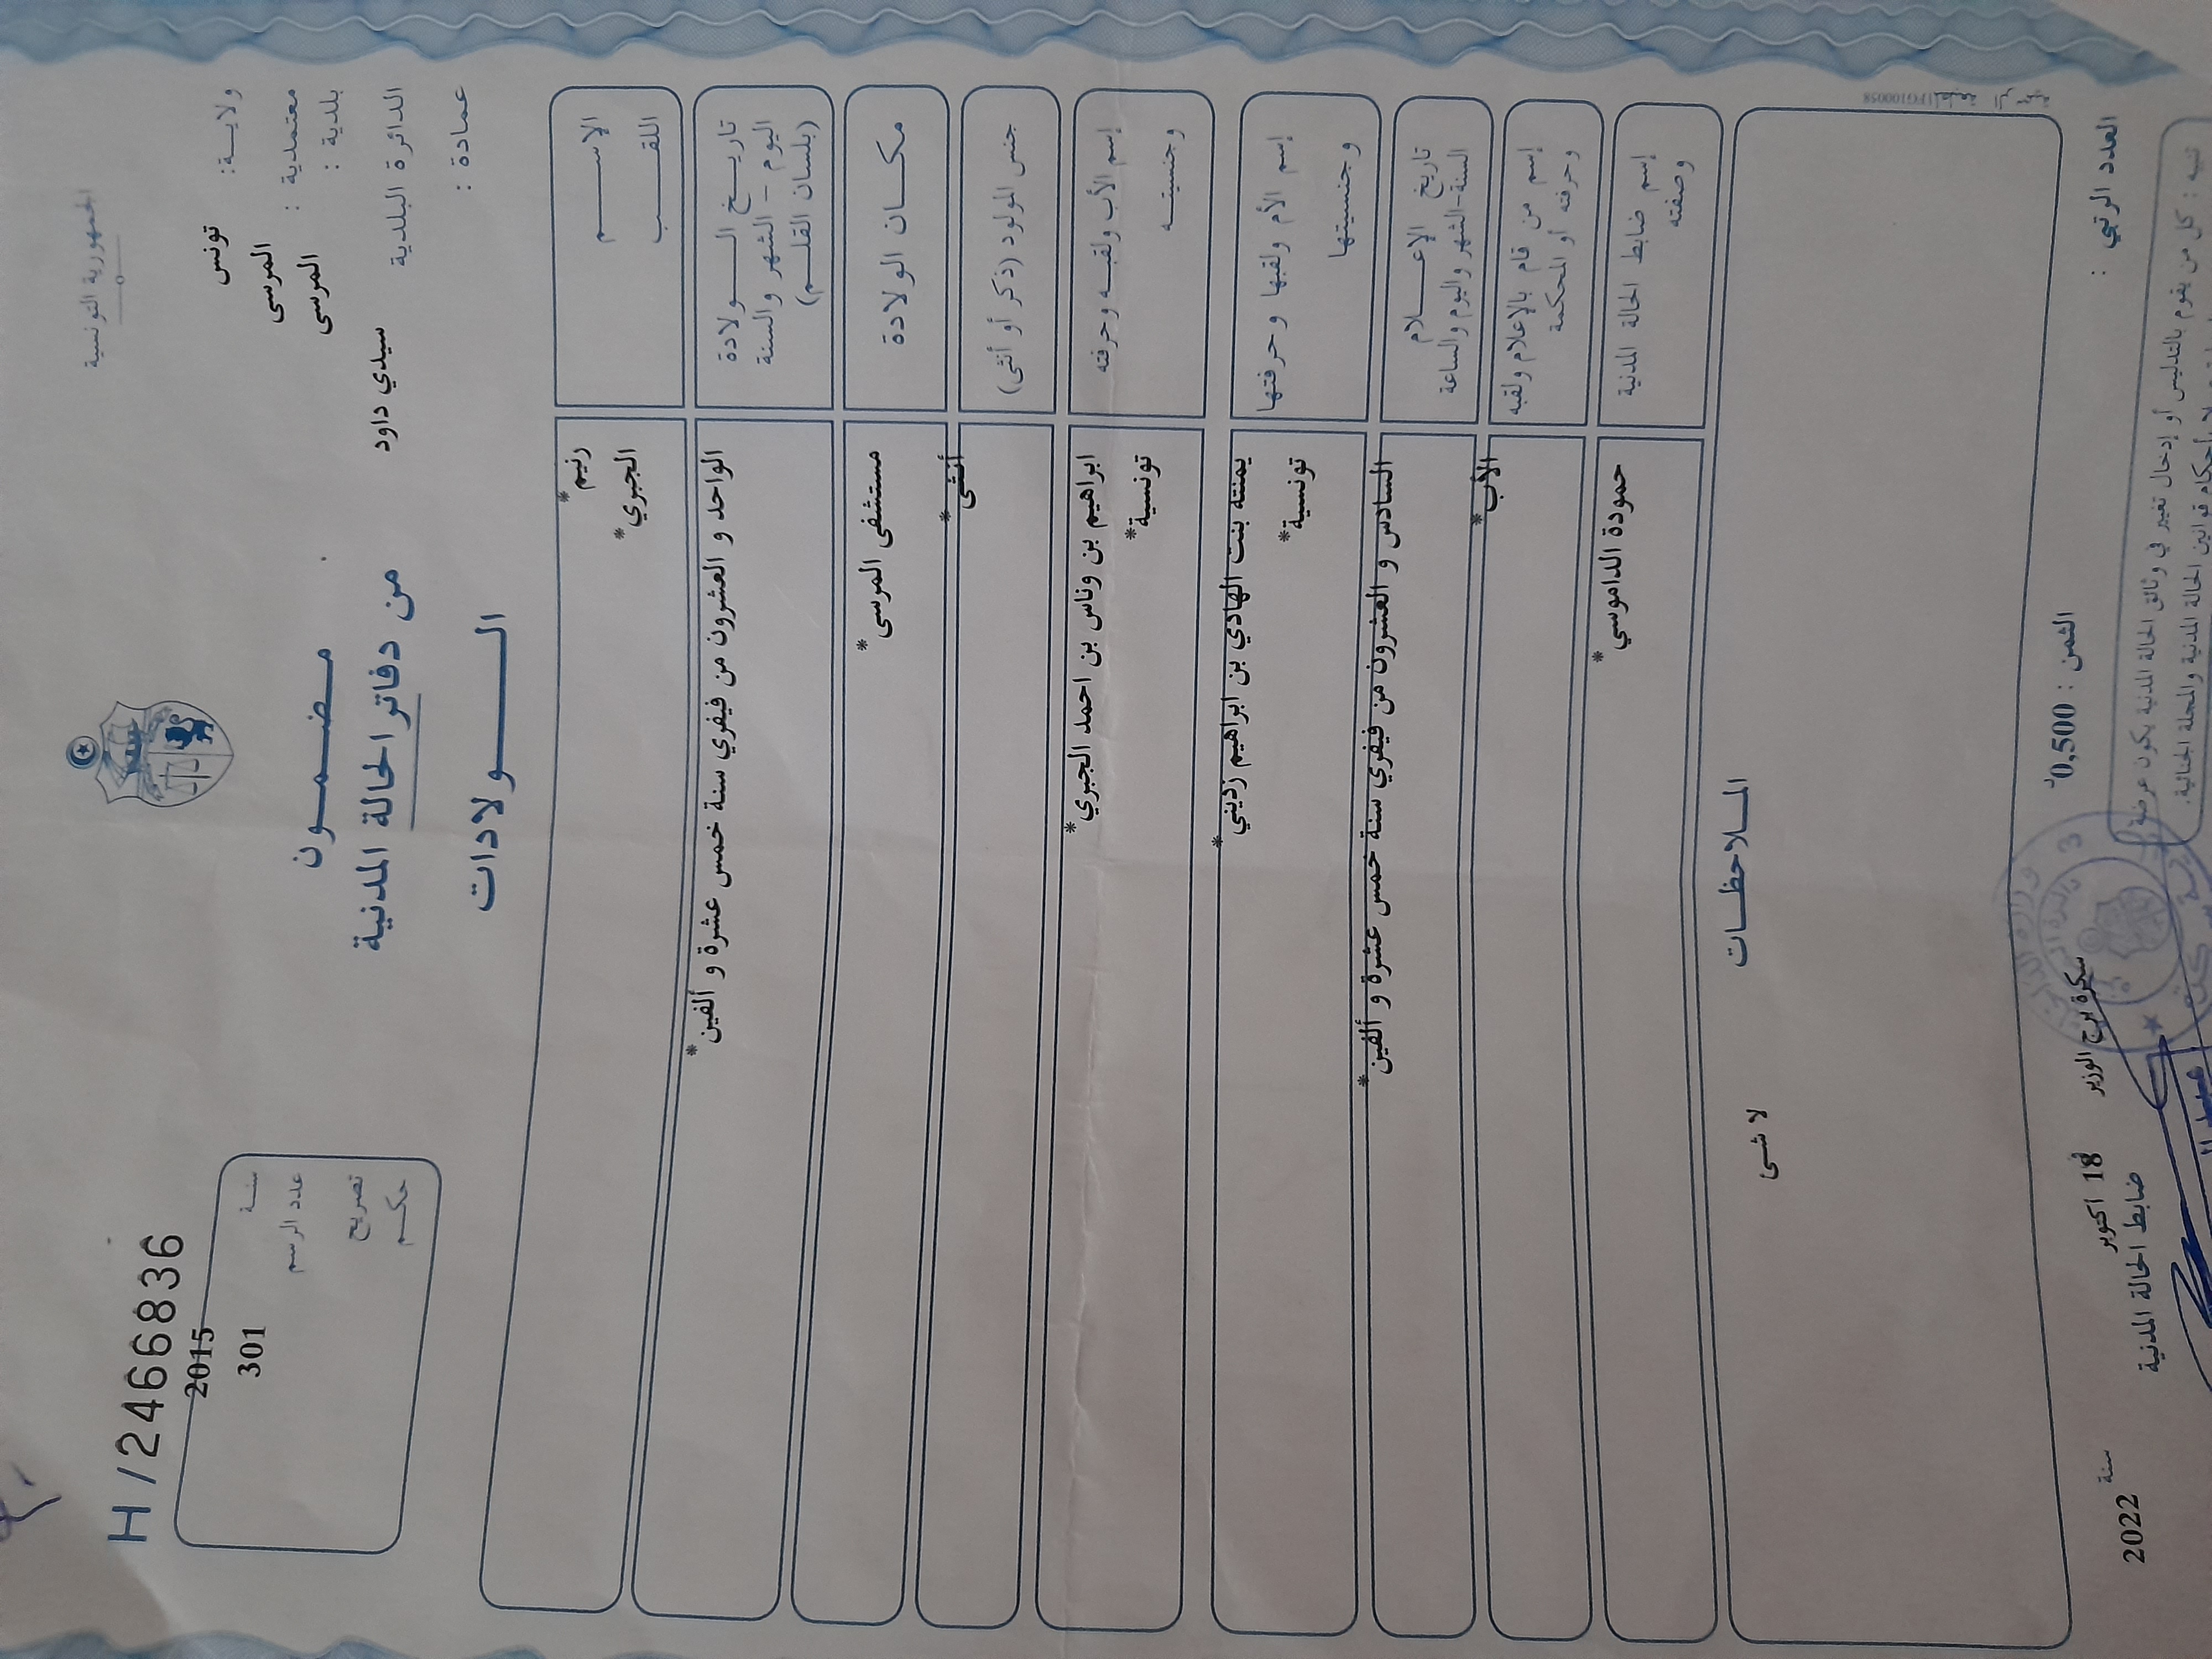 الجمهورية التونسية
H/2466836
ولايـة: تونس
معتمدية : المرسى
بلدية : المرسى
الدائرة البلدية سيدي داود
عمادة :
سنـة 2015
عدد الرسم 301
تصريح
حكـم
مـضـمـون
من دفاتر الحالة المدنية
الـولادات
الإسـم رنيم*
اللقـب الجبري*
تاريـخ الـولادة
اليوم - الشهر والسنة
(بلسان القلـم)
الواحد و العشرون من فيفري سنة خمس عشرة و ألفين*
مكـان الولادة مستشفى المرسى*
جنس المولود (ذكر أو أنثى) أنثى*
إسم الأب ولقبـه وحرفته ابراهيم بن وناس بن احمد الجبري*
وجنسيتـه تونسية*
إسم الأم ولقبها وحرفتها يمنته بنت الهادي بن ابراهيم زديني*
وجنسيتها تونسية*
تاريخ الإعـلام
السنة-الشهر واليوم والساعة
السادس و العشرون من فيفري سنة خمس عشرة و ألفين*
إسم من قام بالإعلام ولقبه
وحرفته أو المحكمة
الأب*
إسم ضابط الحالة المدنية
وصفته
حمودة الداموسي*
الملاحظـات
لا شئ
العدد الرتبي :
الثمن : 0,500
سكرة برج الوزير
18 اكتوبر
سنة 2022
ضابط الحالة المدنية
تنبيه : كل من يقوم بالتدليس أو إدخال تغيير في وثائق الحالة المدنية يكون عرضة
لأحكام قوانين الحالة المدنية والمجلة الجنائية.